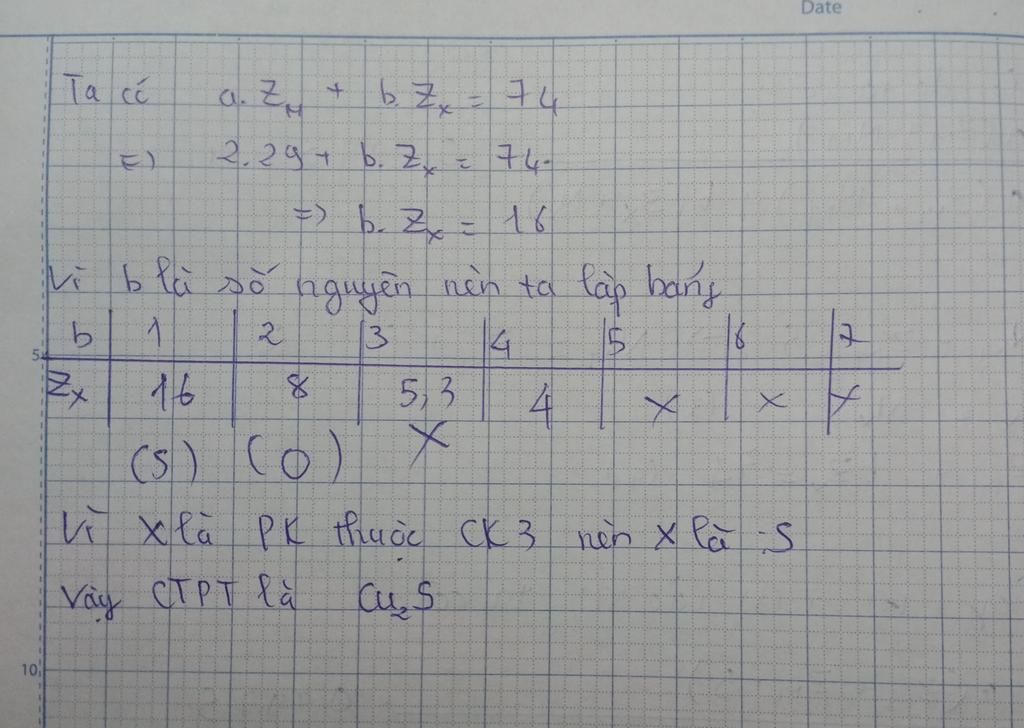 Date
Ta có a. Z_M + b. Z_X = 74
=> 2.29 + b. Z_X = 74.
=> b. Z_X = 16
Vì b là số nguyên nên ta lập bảng
b 1 2 3 4 5 6 7
5
Z_X 16 8 5,3 4 X X X
(S) (O) X
Vì X là PK thuộc CK3 nên X là :S
Vậy CTPT là Cu₂S
10